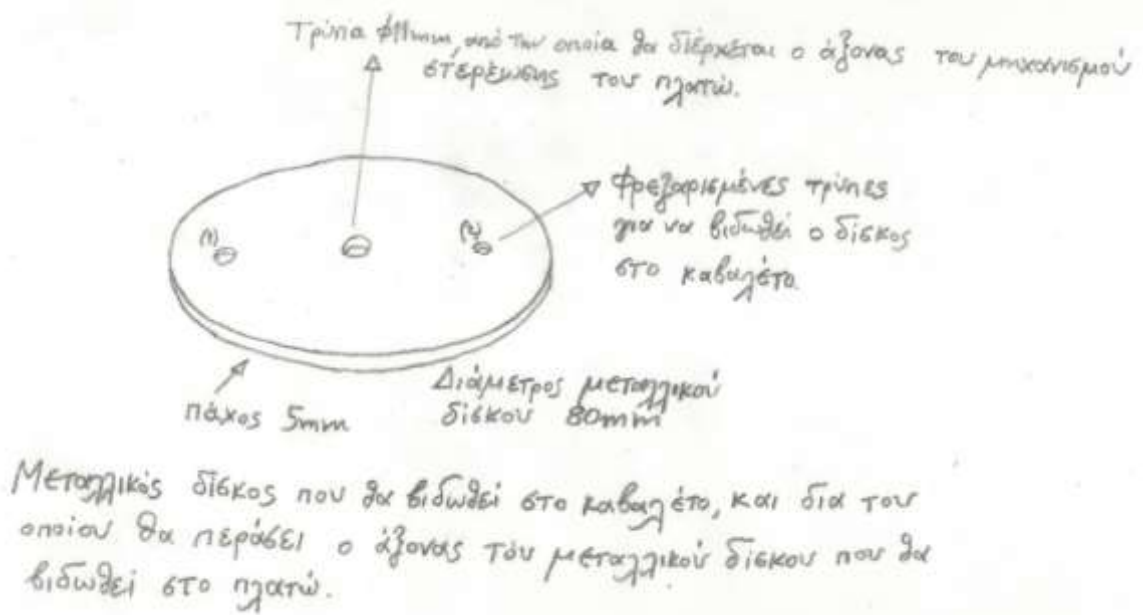 Τρύπα φ11mm, από την οποία θα διέρχεται ο άξονας του μηχανισμού
στερέωσης του πλατώ.
(1)
(2)
Φρεζαρισμένες τρύπες
για να βιδωθεί ο δίσκος
στο καβαλέτο.
πάχος 5mm
Διάμετρος μεταλλικού
δίσκου 80mm
Μεταλλικός δίσκος που θα βιδωθεί στο καβαλέτο, και δια του
οποίου θα περάσει ο άξονας του μεταλλικού δίσκου που θα
βιδωθεί στο πλατώ.